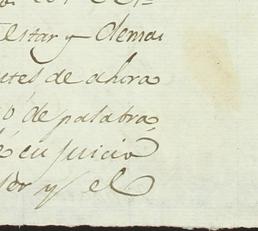 estar y demas
ntes de ahora
o de palabra,
è en juicio
y el